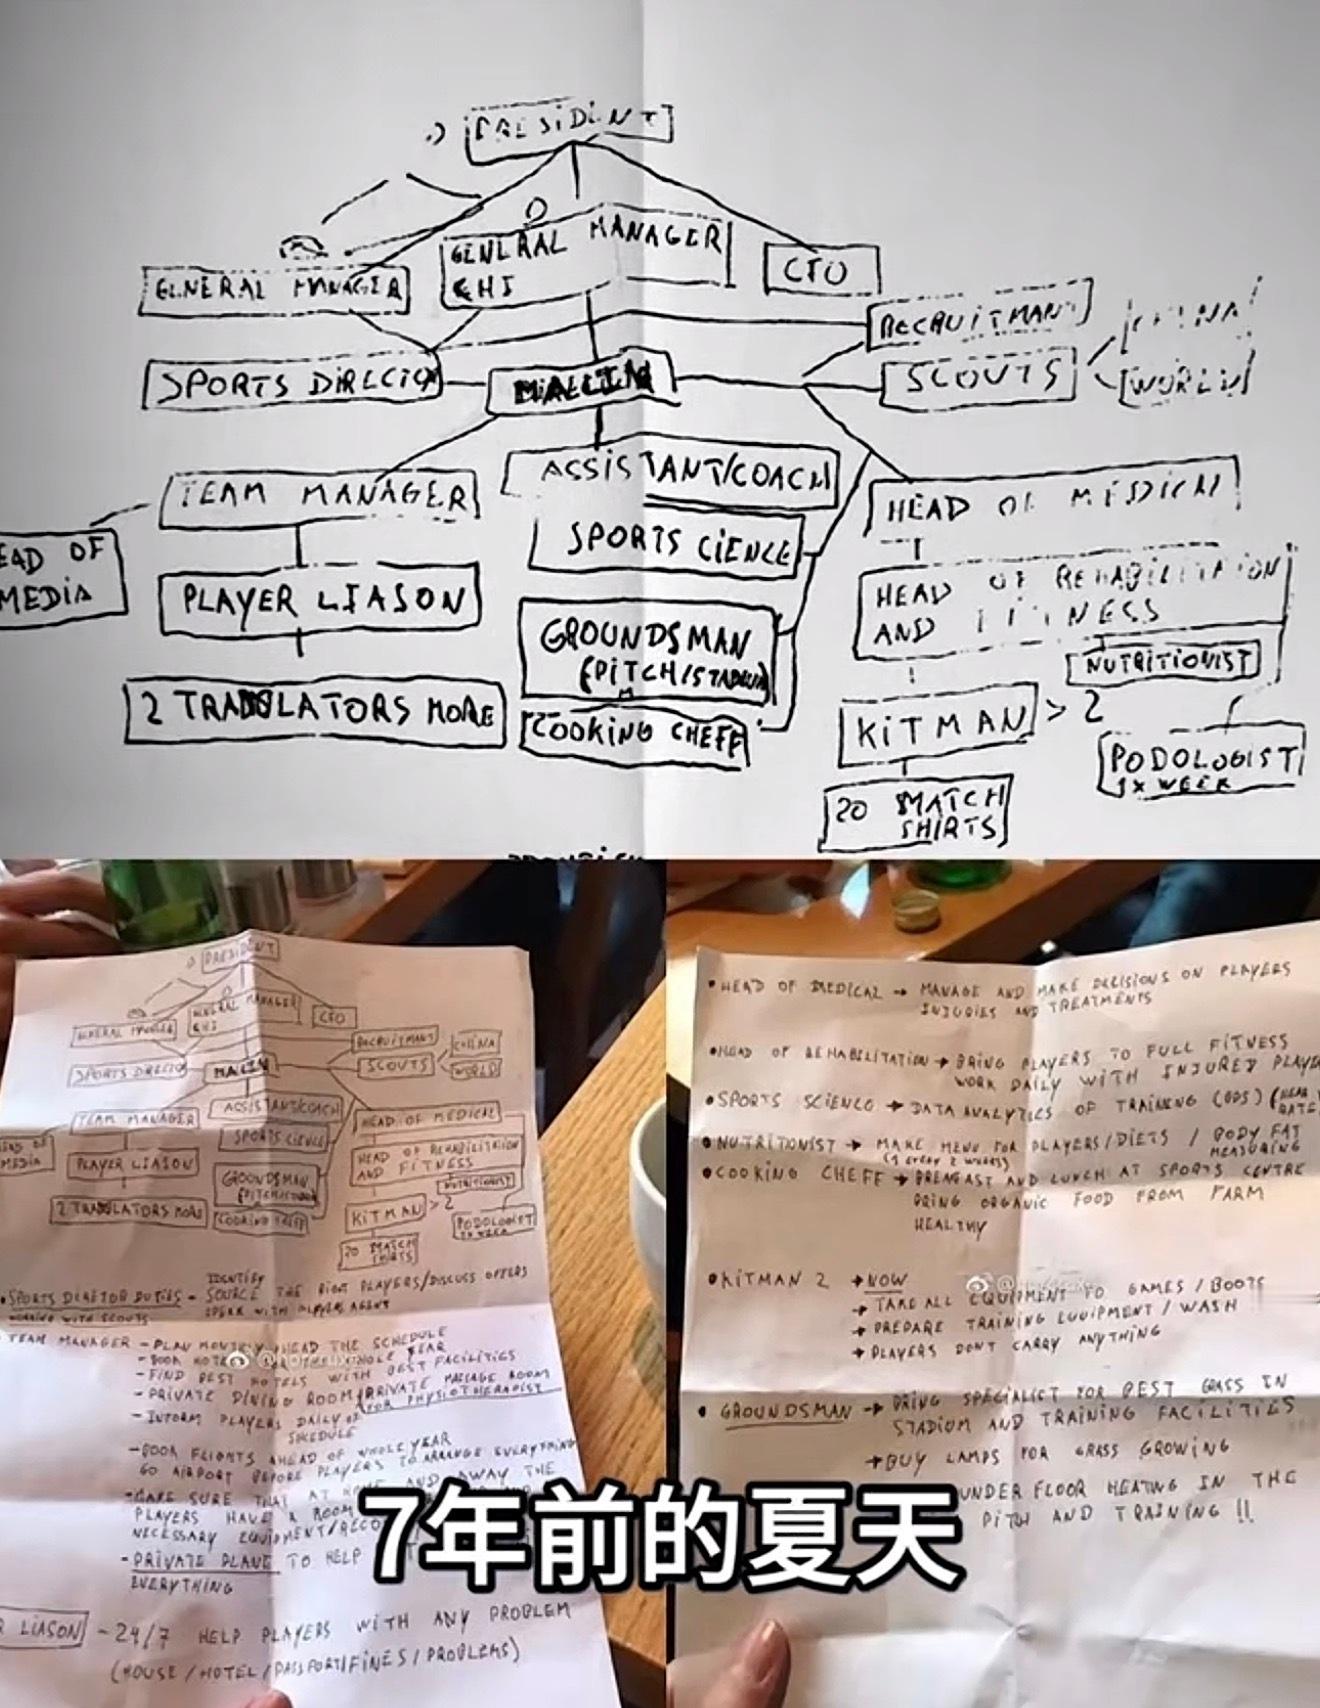 PRESIDENT
GENERAL MANAGER
GENERAL MANAGER
CHI
CFO
RECRUITMANT
SPORTS DIRECTOR
SCOUTS
CHINA
WORLD
TEAM MANAGER
ASSISTANT/COACH
HEAD OF MEDICAL
EAD OF
MEDIA
SPORTS CIENCE
PLAYER LIASON
HEAD OF REHABILITATION
AND FITNESS
GROUNDSMAN
(PITCH/STADIUM)
NUTRITIONIST
2 TRANSLATORS MORE
COOKING CHEFF
KITMAN > 2
PODOLOGIST
1X WEEK
20 MATCH
SHIRTS
PRESIDENT
GENERAL MANAGER
GENERAL MANAGER
CHI
CFO
RECRUITMANT
SPORTS DIRECTOR
SCOUTS
CHINA
WORLD
TEAM MANAGER
ASSISTANT/COACH
HEAD OF MEDICAL
EAD OF
MEDIA
SPORTS CIENCE
PLAYER LIASON
HEAD OF REHABILITATION
AND FITNESS
GROUNDSMAN
(PITCH/STADIUM
NUTRITIONIST
2 TRANSLATORS MORE
COOKING CHEFF
KITMAN > 2
PODOLOGIST
1X WEEK
20 MATCH
SHIRTS
• SPORTS DIRECTOR DUTIES - IDENTIFY
SOURCE THE RIGHT PLAYERS/DISCUSS OFFERS
WORKING WITH SCOUTS SPEAK WITH PLAYERS AGENT
TEAM MANAGER - PLAN MONTHLY AHEAD THE SCHEDULE
- BOOK WHOLE YEAR
- FIND BEST HOTELS WITH BEST FACILITIES
- PRIVATE DINING ROOM/PRIVATE MASSAGE ROOM
FOR PHYSIOTHERAPIST
- INFORM PLAYERS DAILY OF
SHEDULE
- BOOK FLIGHTS AHEAD OF WHOLE YEAR
GO AIRPORT BEFORE PLAYERS TO ARRANGE EVERYTHING
- MAKE SURE THAT AT HOME AND AWAY THE
PLAYERS HAVE A ROOM
NECESSARY EQUIPMENT/
- PRIVATE PLANE TO HELP
EVERYTHING
LIASON - 24/7 HELP PLAYERS WITH ANY PROBLEM
(HOUSE/HOTEL/PASSPORT/FINES/PROBLEMS)
• HEAD OF MEDICAL → MANAGE AND MAKE DECISIONS ON PLAYERS
INJURIES AND TREATMENTS
• HEAD OF REHABILITATION → BRING PLAYERS TO FULL FITNESS
WORK DAILY WITH INJURED PLAYE
• SPORTS SCIENCE → DATA ANALYTICS OF TRAINING (GPS) (HEAR
RATE
• NUTRITIONIST → MAKE MENU FOR PLAYERS/DIETS / BODY FAT
(1 EVERY 2 WEEKS) MEASURING
• COOKING CHEFF → BREAKFAST AND LUNCH AT SPORTS CENTRE
BRING ORGANIC FOOD FROM FARM
HEALTHY
• KITMAN 2 → NOW
→ TAKE ALL EQUIPMENT TO GAMES / BOOTS
→ PREPARE TRAINING EQUIPMENT / WASH
→ PLAYERS DON'T CARRY ANYTHING
• GROUNDSMAN → BRING SPECIALIST FOR BEST GRASS IN
STADIUM AND TRAINING FACILITIES
→ BUY LAMPS FOR GRASS GROWING
UNDER FLOOR HEATING IN THE
PITCH AND TRAINING !!
7年前的夏天